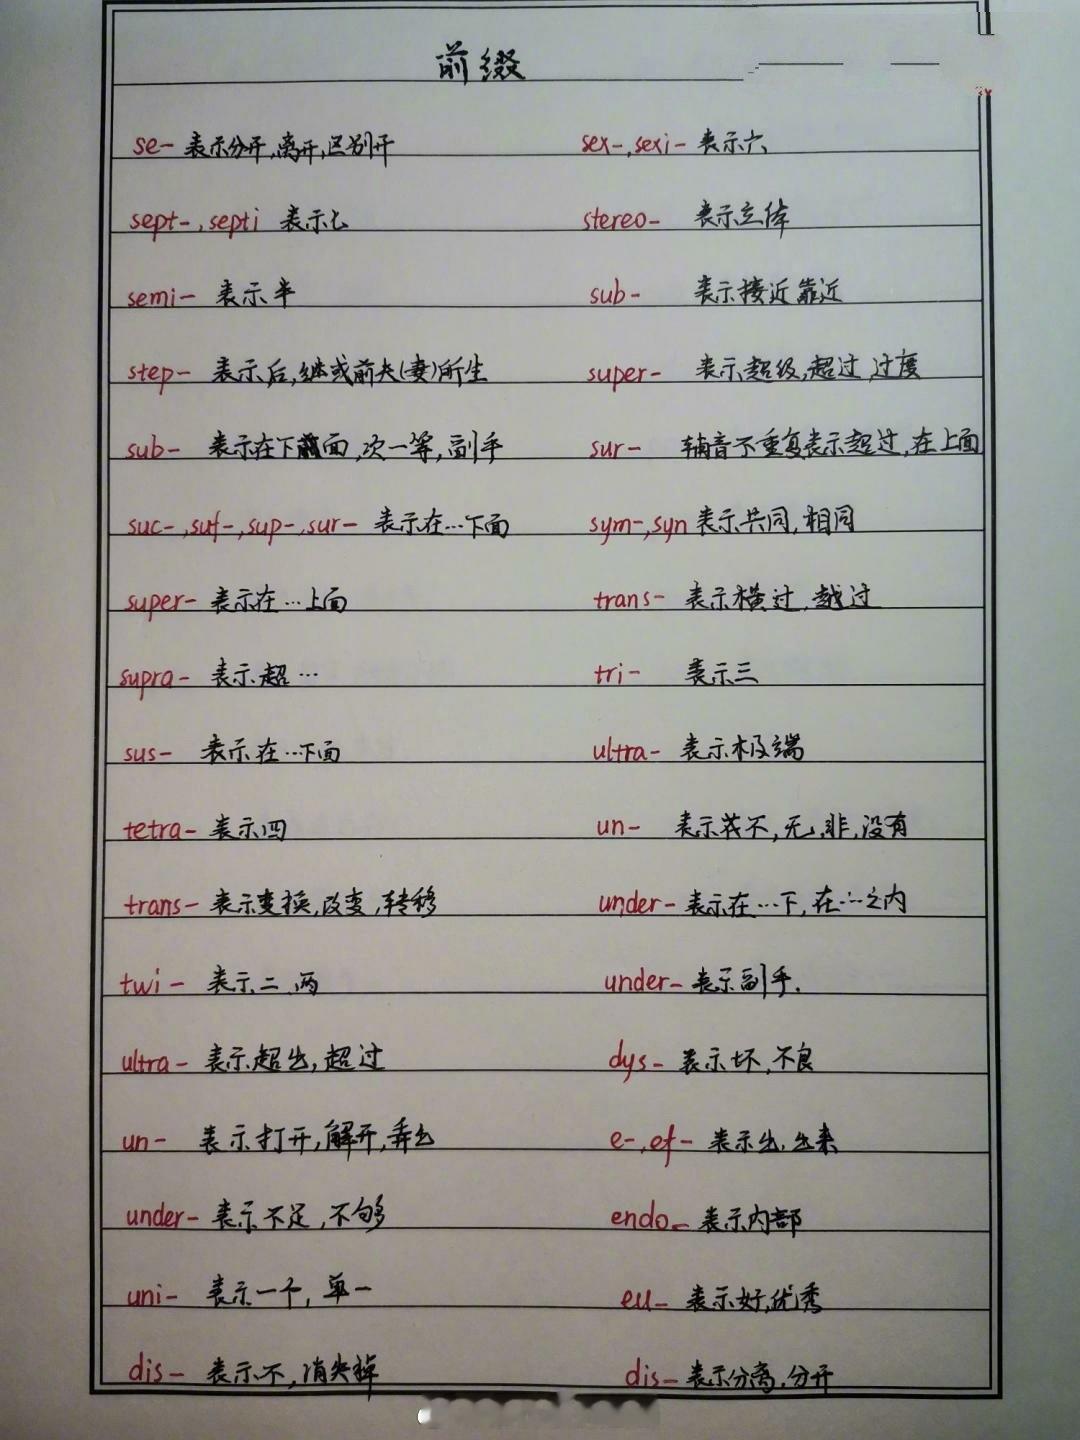 前缀
se- 表示分开,离开,区别开 sex-,sexi- 表示六
sept-,septi 表示七 stereo- 表示立体
semi- 表示半 sub- 表示接近靠近
step- 表示后,继或前夫(妻)所生 super- 表示超级,超过,过度
sub- 表示在下面,次一等,副手 sur- 辅音不重复表示超过,在上面
suc-,suf-,sup-,sur- 表示在…下面 sym-,syn 表示共同,相同
super- 表示在…上面 trans- 表示横过,越过
supra- 表示超… tri- 表示三
sus- 表示在…下面 ultra- 表示极端
tetra- 表示四 un- 表示不,无,非,没有
trans- 表示变换,改变,转移 under- 表示在…下,在…之内
twi- 表示二、两 under- 表示副手.
ultra- 表示超出,超过 dys- 表示坏,不良
un- 表示打开,解开,弄出 e-,ef- 表示出,出来
under- 表示不足,不够 endo- 表示内部
uni- 表示一个,单一 eu- 表示好,优秀
dis- 表示不,消失掉 dis- 表示分离,分开